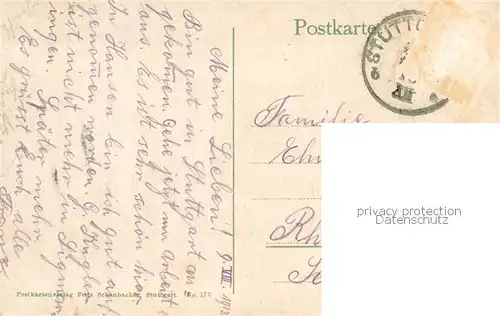 Postkarte
STUTTG
Meine Lieben! 9. VII. 1913
Bin gut in Stuttgart an
gekommen gehe jetzt um Arbeit
aus. Es ist sehr schön hier.
In Hausen bin ich gut auf
genomen worden. E. Kugler
ist nicht mehr in Sigmar
ingen. Später mehr.
Es grüsst Euch alle
Franz
Familie
Eh
Rh
privacy protection
watermark
Postkartenverlag Fritz Schanbacher, Stuttgart. No. 175